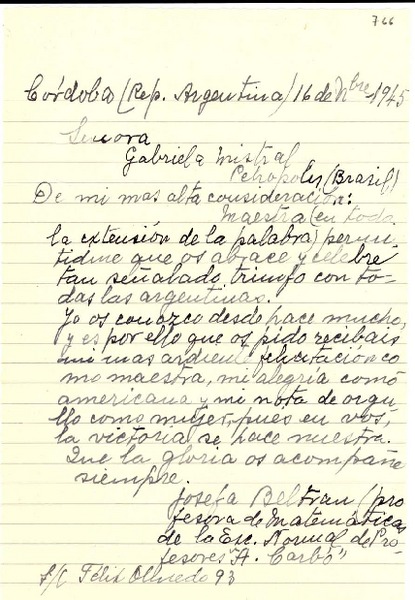 766
Córdoba (Rep. Argentina) 16 de Nbre 1945
Señora
Gabriela Mistral
Petropolis (Brasil)
De mi mas alta consideración:
Maestra (en toda
la extensión de la palabra) permi-
tidme que os abrace y celebre
tan señalado triunfo con to-
das las argentinas.
Yo os conozco desde hace mucho,
y es por ello que os pido recibais
mi mas ardiente felicitación co
mo maestra, mi alegria como
americana y mi nota de orgu-
llo como mujer, pues en vos,
la victoria se hace nuestra.
Que la gloria os acompañe
siempre.
Josefa Beltran (pro
fesora de Matemáticas
de la Esc. Normal de Pro-
fesores "A. Carbó"
S/C Félix Olmedo 93